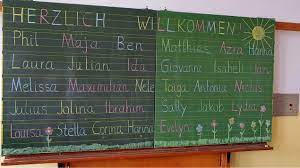 HERZLICH WILLKOMMEN!
Phil Maja Ben Matthias Azra Hanna
Laura Julian Ida Giovanni Isabell
Melissa Maximilian Nele Taiga Antonia
Julius Jolina Ibrahim Sally Jakob Lydia
Louisa Stella Corina Hanna Evelyn